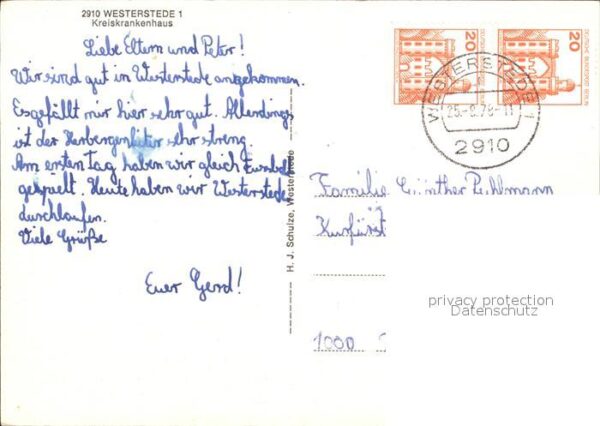 2910 WESTERSTEDE 1
Kreiskrankenhaus
Liebe Eltern und Peter!
Wir sind gut in Westerstede angekommen.
Es gefällt mir hier sehr gut. Allerdings
ist der Herbergenleiter sehr streng.
Am ersten Tag haben wir gleich Fussball
gespielt. Heute haben wir Westerstede
durchlaufen.
Viele Grüße
Euer Gerd!
H. J. Schulze, Westerstede
20
20
WESTERSTEDE 1
25.-9.78-11
2910
Familie Günther
Kurfürst
privacy protection
Datenschutz
1000